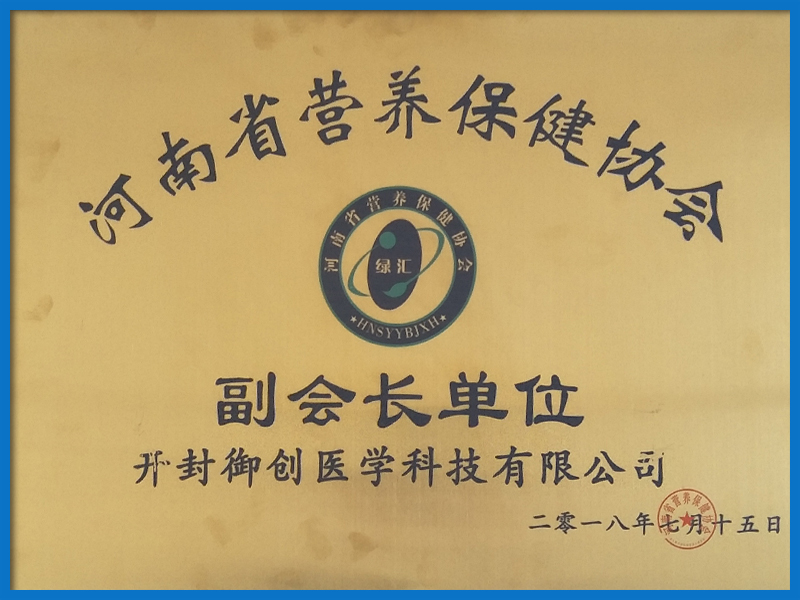 河南省营养保健协会
河南省营养保健协会
绿汇
★HNSYYBJXH★
副会长单位
开封御创医学科技有限公司
二零一八年七月十五日
河南省营养保健协会